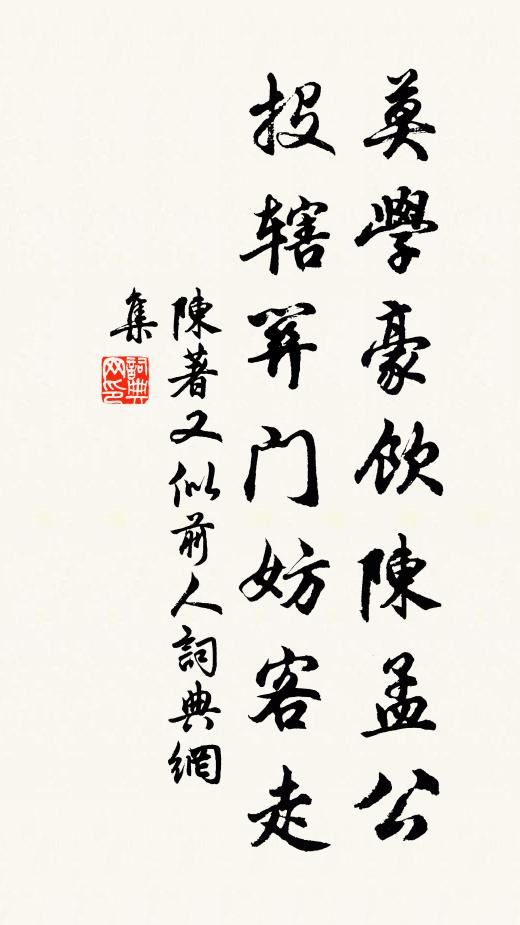 莫學豪飲陳孟公
投辖关门妨客走
陳著又似前人詞典網
集
詞典网印